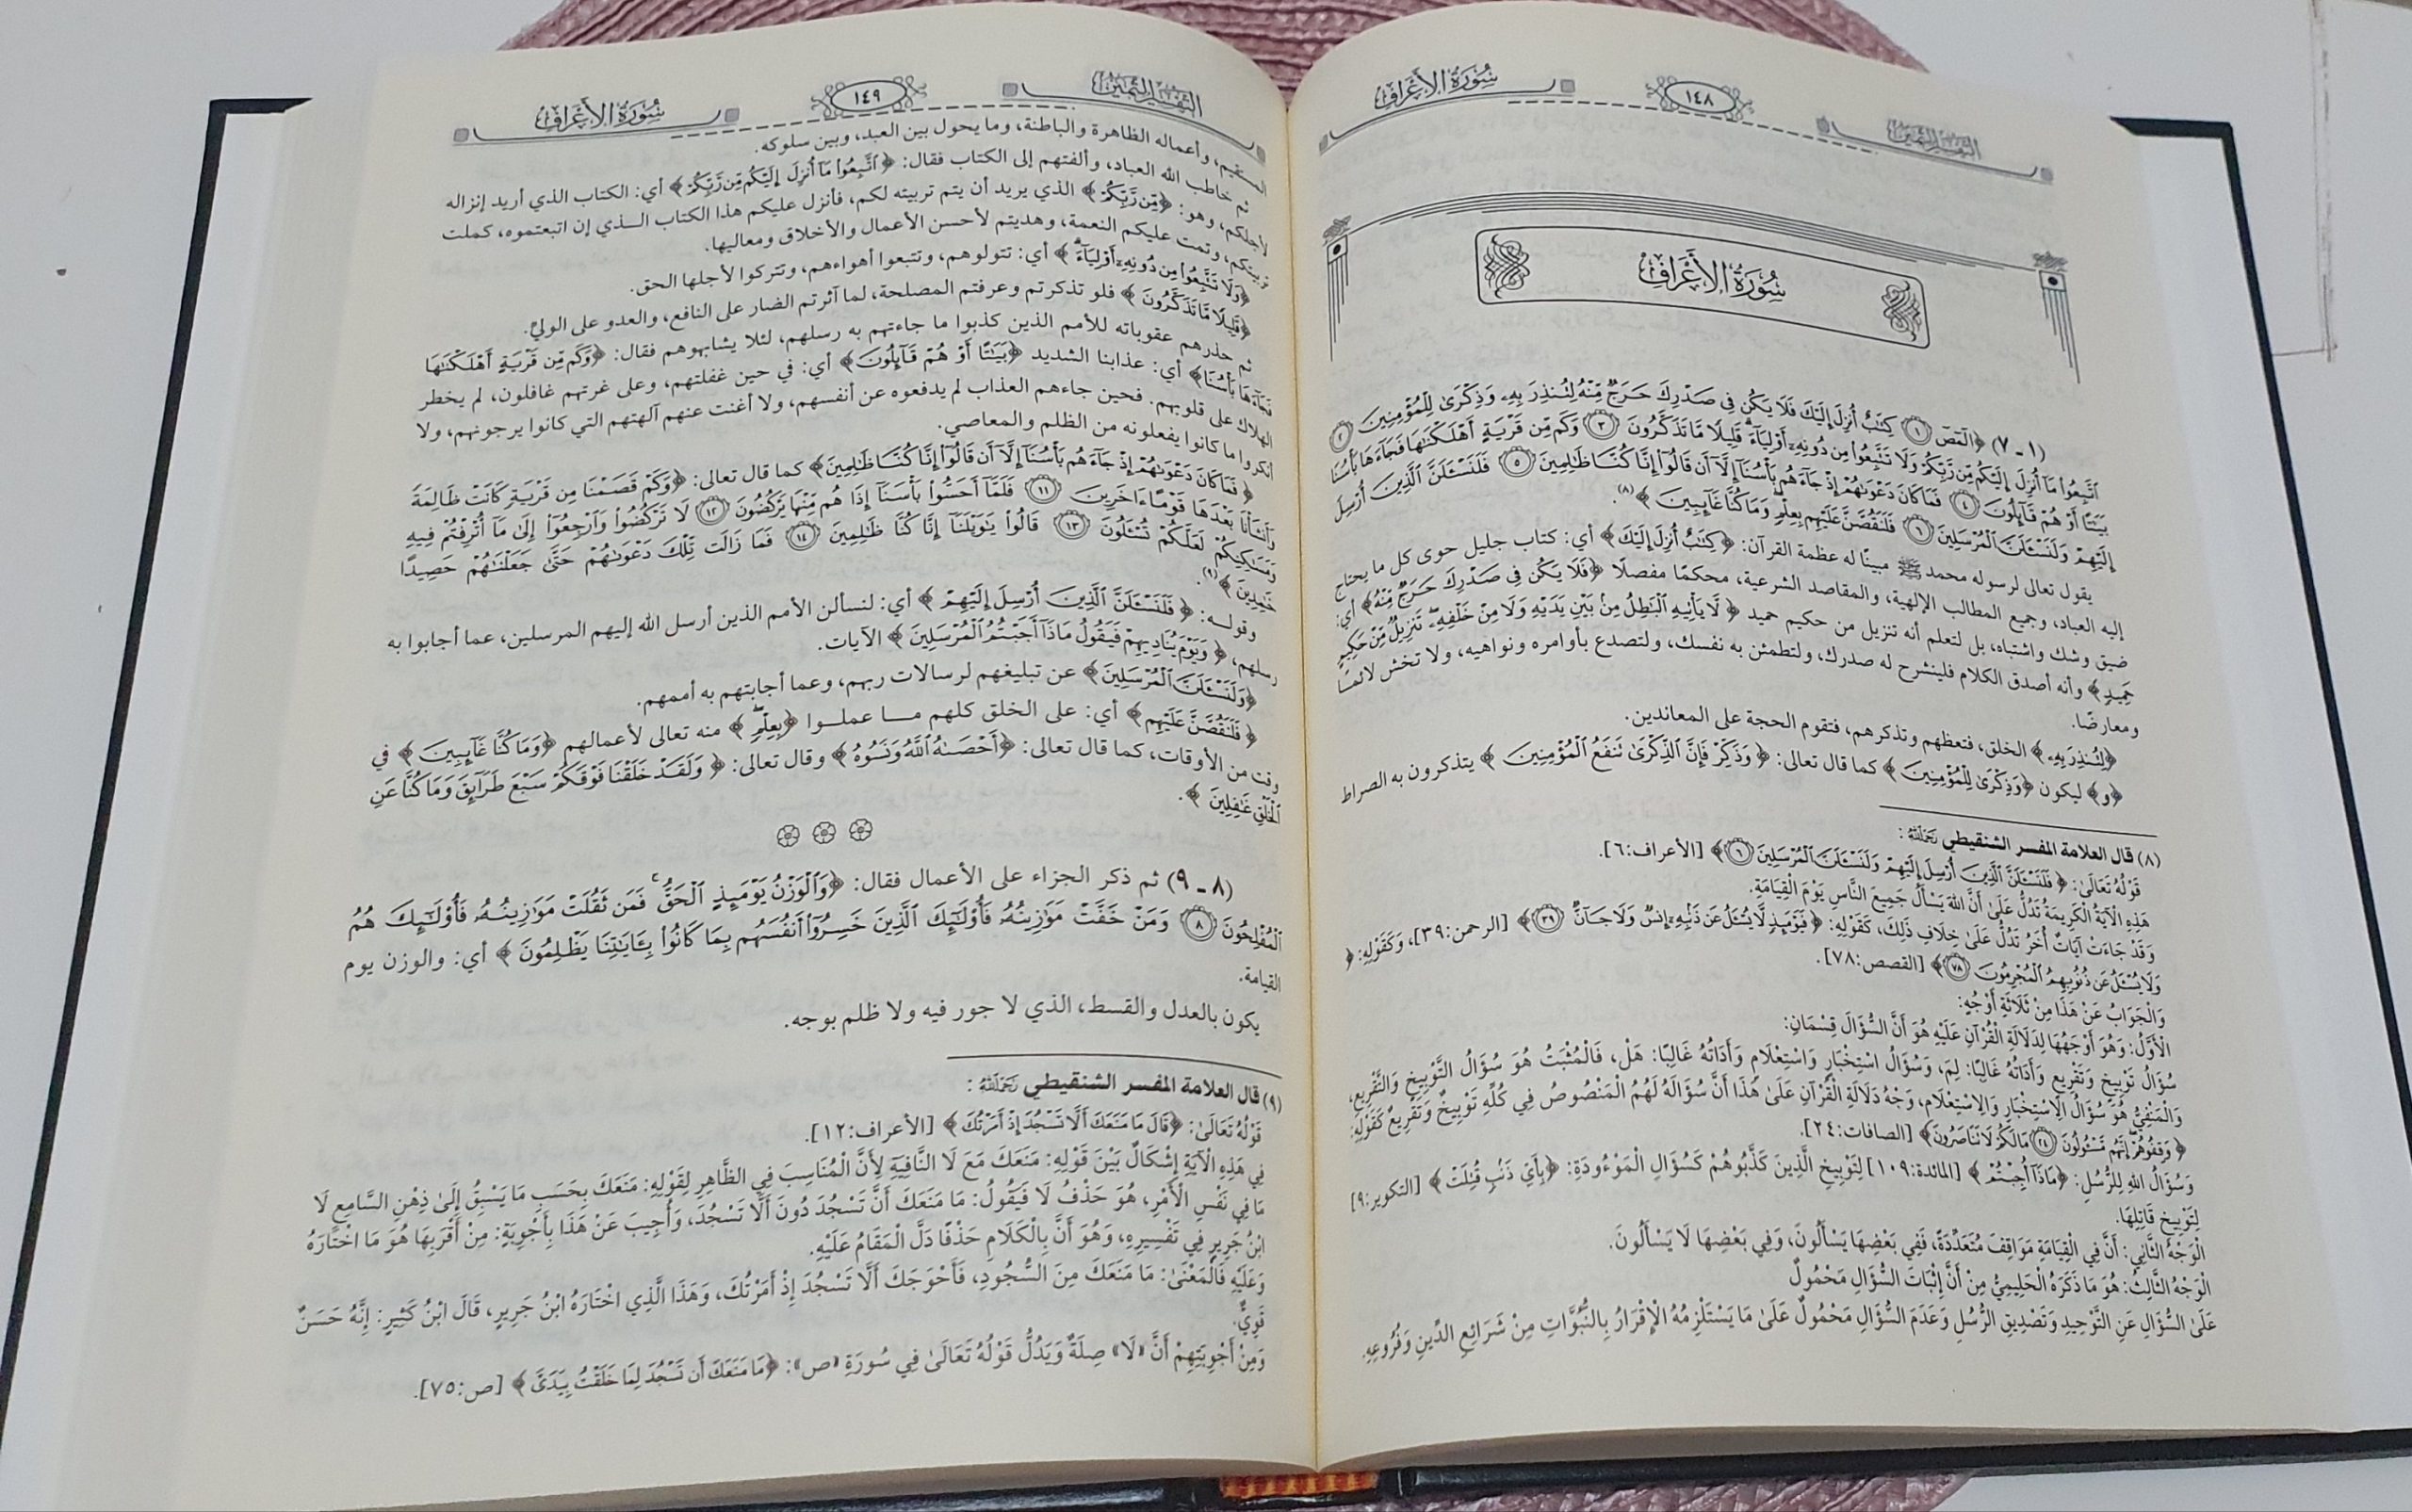 سُورَةُ الأَعْرَافِ
١٤٨
التفسير الثمين
سُورَةُ الأَعْرَافِ
(١ـ ٧) ﴿الٓمٓصٓ ۝١ كِتَٰبٌ أُنزِلَ إِلَيْكَ فَلَا يَكُن فِى صَدْرِكَ حَرَجٌ مِّنْهُ لِتُنذِرَ بِهِۦ وَذِكْرَىٰ لِلْمُؤْمِنِينَ ۝٢
ٱتَّبِعُوا۟ مَآ أُنزِلَ إِلَيْكُم مِّن رَّبِّكُمْ وَلَا تَتَّبِعُوا۟ مِن دُونِهِۦٓ أَوْلِيَآءَ ۗ قَلِيلًا مَّا تَذَكَّرُونَ ۝٣ وَكَم مِّن قَرْيَةٍ أَهْلَكْنَٰهَا فَجَآءَهَا بَأْسُنَا
بَيَٰتًا أَوْ هُمْ قَآئِلُونَ ۝٤ فَمَا كَانَ دَعْوَىٰهُمْ إِذْ جَآءَهُم بَأْسُنَآ إِلَّآ أَن قَالُوٓا۟ إِنَّا كُنَّا ظَٰلِمِينَ ۝٥ فَلَنَسْـَٔلَنَّ ٱلَّذِينَ أُرْسِلَ
إِلَيْهِمْ وَلَنَسْـَٔلَنَّ ٱلْمُرْسَلِينَ ۝٦ فَلَنَقُصَّنَّ عَلَيْهِم بِعِلْمٍ ۖ وَمَا كُنَّا غَآئِبِينَ ﴾(٨).
يقول تعالى لرسوله محمد ﷺ مبينًا له عظمة القرآن: ﴿ كِتَٰبٌ أُنزِلَ إِلَيْكَ ﴾ أي: كتاب جليل حوى كل ما يحتاج
إليه العباد، وجميع المطالب الإلهية، والمقاصد الشرعية، محكمًا مفصلًا ﴿فَلَا يَكُن فِى صَدْرِكَ حَرَجٌ مِّنْهُ﴾ أي:
ضيق وشك واشتباه، بل لتعلم أنه تنزيل من حكيم حميد ﴿ لَّا يَأْتِيهِ ٱلْبَٰطِلُ مِنۢ بَيْنِ يَدَيْهِ وَلَا مِنْ خَلْفِهِۦ ۖ تَنزِيلٌ مِّنْ حَكِيمٍ
حَمِيدٍ﴾ وأنه أصدق الكلام فلينشرح له صدرك، ولتطمئن به نفسك، ولتصدع بأوامره ونواهيه، ولا تخش لائمًا
ومعارضًا.
﴿لِتُنذِرَ بِهِۦ﴾ الخلق، فتعظهم وتذكرهم، فتقوم الحجة على المعاندين.
﴿و﴾ ليكون ﴿وَذِكْرَىٰ لِلْمُؤْمِنِينَ﴾ كما قال تعالى: ﴿ وَذَكِّرْ فَإِنَّ ٱلذِّكْرَىٰ تَنفَعُ ٱلْمُؤْمِنِينَ ﴾ يتذكرون به الصراط
(٨) قال العلامة المفسر الشنقيطي رَحِمَهُ ٱللَّهُ:
قَوْلُهُ تَعَالَىٰ: ﴿ فَلَنَسْـَٔلَنَّ ٱلَّذِينَ أُرْسِلَ إِلَيْهِمْ وَلَنَسْـَٔلَنَّ ٱلْمُرْسَلِينَ ۝٦﴾ [الأعراف:٦].
هَذِهِ الْآيَةُ الْكَرِيمَةُ تَدُلُّ عَلَىٰ أَنَّ اللهَ يَسْأَلُ جَمِيعَ النَّاسِ يَوْمَ الْقِيَامَةِ.
وَقَدْ جَاءَتْ آيَاتٌ أُخَرُ تَدُلُّ عَلَىٰ خِلَافِ ذَلِكَ، كَقَوْلِهِ: ﴿ فَيَوْمَئِذٍ لَّا يُسْـَٔلُ عَن ذَنۢبِهِۦٓ إِنسٌ وَلَا جَآنٌّ ۝٣٩﴾ [الرحمن:٣٩]، وَكَقَوْلِهِ: ﴿
وَلَا يُسْـَٔلُ عَن ذُنُوبِهِمُ ٱلْمُجْرِمُونَ ۝٧٨﴾ [القصص:٧٨].
وَالْجَوَابُ عَنْ هَذَا مِنْ ثَلَاثَةِ أَوْجُهٍ:
الْأَوَّلُ: وَهُوَ أَوْجَهُهَا لِدَلَالَةِ الْقُرْآنِ عَلَيْهِ هُوَ أَنَّ السُّؤَالَ قِسْمَانِ:
سُؤَالُ تَوْبِيخٍ وَتَقْرِيعٍ وَأَدَاتُهُ غَالِبًا: لِمَ، وَسُؤَالُ اسْتِخْبَارٍ وَاسْتِعْلَامٍ وَأَدَاتُهُ غَالِبًا: هَلْ، فَالْمُثْبَتُ هُوَ سُؤَالُ التَّوْبِيخِ وَالتَّقْرِيعِ،
وَالْمَنْفِيُّ هُوَ سُؤَالُ الِاسْتِخْبَارِ وَالِاسْتِعْلَامِ، وَجْهُ دَلَالَةِ الْقُرْآنِ عَلَىٰ هَٰذَا أَنَّ سُؤَالَهُ لَهُمُ الْمَنْصُوصُ فِي كُلِّهِ تَوْبِيخٌ وَتَقْرِيعٌ كَقَوْلِهِ:
﴿ وَقِفُوهُمْ ۖ إِنَّهُم مَّسْـُٔولُونَ ۝٢٤ مَا لَكُمْ لَا تَنَاصَرُونَ﴾ [الصافات:٢٤].
وَسُؤَالُ اللهِ لِلرُّسُلِ: ﴿مَاذَآ أُجِبْتُمْ ﴾ [المائدة:١٠٩] لِتَوْبِيخِ الَّذِينَ كَذَّبُوهُمْ كَسُؤَالِ الْمَوْءُودَةِ: ﴿بِأَىِّ ذَنۢبٍ قُتِلَتْ ﴾ [التكوير:٩]
لِتَوْبِيخِ قَاتِلِهَا.
الْوَجْهُ الثَّانِي: أَنَّ فِي الْقِيَامَةِ مَوَاقِفَ مُتَعَدِّدَةً، فَفِي بَعْضِهَا يَسْأَلُونَ، وَفِي بَعْضِهَا لَا يَسْأَلُونَ.
الْوَجْهُ الثَّالِثُ: هُوَ مَا ذَكَرَهُ الْحَلِيمِيُّ مِنْ أَنَّ إِثْبَاتَ السُّؤَالِ مَحْمُولٌ
عَلَىٰ السُّؤَالِ عَنِ التَّوْحِيدِ وَتَصْدِيقِ الرُّسُلِ وَعَدَمَ السُّؤَالِ مَحْمُولٌ عَلَىٰ مَا يَسْتَلْزِمُهُ الْإِقْرَارُ بِالنُّبُوَّاتِ مِنْ شَرَائِعِ الدِّينِ وَفُرُوعِهِ.
التفسير الثمين
١٤٩
سُورَةُ الأَعْرَافِ
المستقيم، وأعماله الظاهرة والباطنة، وما يحول بين العبد، وبين سلوكه.
ثم خاطب الله العباد، وألفتهم إلى الكتاب فقال: ﴿ ٱتَّبِعُوا۟ مَآ أُنزِلَ إِلَيْكُم مِّن رَّبِّكُمْ ﴾ أي: الكتاب الذي أريد إنزاله
لأجلكم، وهو: ﴿مِّن رَّبِّكُمْ ﴾ الذي يريد أن يتم تربيته لكم، فأنزل عليكم هذا الكتاب الـذي إن اتبعتموه، كملت
تربيتكم، وتمت عليكم النعمة، وهديتم لأحسن الأعمال والأخلاق ومعاليها.
﴿وَلَا تَتَّبِعُوا۟ مِن دُونِهِۦٓ أَوْلِيَآءَ ۗ ﴾ أي: تتولوهم، وتتبعوا أهواءهم، وتتركوا لأجلها الحق.
﴿قَلِيلًا مَّا تَذَكَّرُونَ ﴾ فلو تذكرتم وعرفتم المصلحة، لما آثرتم الضار على النافع، والعدو على الوليِّ.
ثم حذرهم عقوباته للأمم الذين كذبوا ما جاءتهم به رسلهم، لئلا يشابهوهم فقال: ﴿وَكَم مِّن قَرْيَةٍ أَهْلَكْنَٰهَا
فَجَآءَهَا بَأْسُنَا﴾ أي: عذابنا الشديد ﴿بَيَٰتًا أَوْ هُمْ قَآئِلُونَ﴾ أي: في حين غفلتهم، وعلى غرتهم غافلون، لم يخطر
الهلاك على قلوبهم. فحين جاءهم العذاب لم يدفعوه عن أنفسهم، ولا أغنت عنهم آلهتهم التي كانوا يرجونهم، ولا
أنكروا ما كانوا يفعلونه من الظلم والمعاصي.
﴿ فَمَا كَانَ دَعْوَىٰهُمْ إِذْ جَآءَهُم بَأْسُنَآ إِلَّآ أَن قَالُوٓا۟ إِنَّا كُنَّا ظَٰلِمِينَ﴾ كما قال تعالى: ﴿وَكَمْ قَصَمْنَا مِن قَرْيَةٍ كَانَتْ ظَالِمَةً
وَأَنشَأْنَا بَعْدَهَا قَوْمًا ءَاخَرِينَ ۝١١ فَلَمَّآ أَحَسُّوا۟ بَأْسَنَآ إِذَا هُم مِّنْهَا يَرْكُضُونَ ۝١٢ لَا تَرْكُضُوا۟ وَٱرْجِعُوٓا۟ إِلَىٰ مَآ أُتْرِفْتُمْ فِيهِ
وَمَسَٰكِنِكُمْ لَعَلَّكُمْ تُسْـَٔلُونَ ۝١٣ قَالُوا۟ يَٰوَيْلَنَآ إِنَّا كُنَّا ظَٰلِمِينَ ۝١٤ فَمَا زَالَت تِّلْكَ دَعْوَىٰهُمْ حَتَّىٰ جَعَلْنَٰهُمْ حَصِيدًا
خَٰمِدِينَ ﴾(٩).
وقولـه: ﴿ فَلَنَسْـَٔلَنَّ ٱلَّذِينَ أُرْسِلَ إِلَيْهِمْ ﴾ أي: لنسألن الأمم الذين أرسل الله إليهم المرسلين، عما أجابوا به
رسلهم، ﴿ وَيَوْمَ يُنَادِيهِمْ فَيَقُولُ مَاذَآ أَجَبْتُمُ ٱلْمُرْسَلِينَ ﴾ الآيات.
﴿وَلَنَسْـَٔلَنَّ ٱلْمُرْسَلِينَ﴾ عن تبليغهم لرسالات ربهم، وعما أجابتهم به أممهم.
﴿ فَلَنَقُصَّنَّ عَلَيْهِم﴾ أي: على الخلق كلهم مـــا عملـــوا ﴿بِعِلْمٍ ۖ ﴾ منه تعالى لأعمالهم ﴿وَمَا كُنَّا غَآئِبِينَ ﴾ في
وقت من الأوقات، كما قال تعالى: ﴿أَحْصَىٰهُ ٱللَّهُ وَنَسُوهُ ﴾ وقال تعالى: ﴿ وَلَقَدْ خَلَقْنَا فَوْقَكُمْ سَبْعَ طَرَآئِقَ وَمَا كُنَّا عَنِ
ٱلْخَلْقِ غَٰفِلِينَ ﴾.
(٨ـ ٩) ثم ذكر الجزاء على الأعمال فقال: ﴿وَٱلْوَزْنُ يَوْمَئِذٍ ٱلْحَقُّ ۚ فَمَن ثَقُلَتْ مَوَٰزِينُهُۥ فَأُو۟لَٰٓئِكَ هُمُ
ٱلْمُفْلِحُونَ ۝٨ وَمَنْ خَفَّتْ مَوَٰزِينُهُۥ فَأُو۟لَٰٓئِكَ ٱلَّذِينَ خَسِرُوٓا۟ أَنفُسَهُم بِمَا كَانُوا۟ بِـَٔايَٰتِنَا يَظْلِمُونَ ﴾ أي: والوزن يوم
القيامة.
يكون بالعدل والقسط، الذي لا جور فيه ولا ظلم بوجه.
(٩) قال العلامة المفسر الشنقيطي رَحِمَهُ ٱللَّهُ:
قَوْلُهُ تَعَالَىٰ: ﴿قَالَ مَا مَنَعَكَ أَلَّا تَسْجُدَ إِذْ أَمَرْتُكَ ﴾ [الأعراف:١٢].
فِي هَذِهِ الْآيَةِ إِشْكَالٌ بَيْنَ قَوْلِهِ: مَنَعَكَ مَعَ لَا النَّافِيَةِ لِأَنَّ الْمُنَاسِبَ فِي الظَّاهِرِ لِقَوْلِهِ: مَنَعَكَ بِحَسَبِ مَا يَسْبِقُ إِلَىٰ ذِهْنِ السَّامِعِ لَا
مَا فِي نَفْسِ الْأَمْرِ، هُوَ حَذْفُ لَا فَيَقُولُ: مَا مَنَعَكَ أَنَّ تَسْجُدَ دُونَ أَلَّا تَسْجُدَ، وَأُجِيبَ عَنْ هَذَا بِأَجْوِبَةٍ: مِنْ أَقْرَبِهَا هُوَ مَا اخْتَارَهُ
ابْنُ جَرِيرٍ فِي تَفْسِيرِهِ، وَهُوَ أَنَّ بِالْكَلَامِ حَذْفًا دَلَّ الْمَقَامُ عَلَيْهِ.
وَعَلَيْهِ فَالْمَعْنَىٰ: مَا مَنَعَكَ مِنَ السُّجُودِ، فَأَحْوَجَكَ أَلَّا تَسْجُدَ إِذْ أَمَرْتُكَ، وَهَذَا الَّذِي اخْتَارَهُ ابْنُ جَرِيرٍ، قَالَ ابْنُ كَثِيرٍ: إِنَّهُ حَسَنٌ
قَوِيٌّ.
وَمِنْ أَجْوِبَتِهِمْ أَنَّ «لَا» صِلَةٌ وَيَدُلُّ قَوْلُهُ تَعَالَىٰ فِي سُورَةِ «ص»: ﴿مَا مَنَعَكَ أَن تَسْجُدَ لِمَا خَلَقْتُ بِيَدَىَّ ﴾ [ص:٧٥].